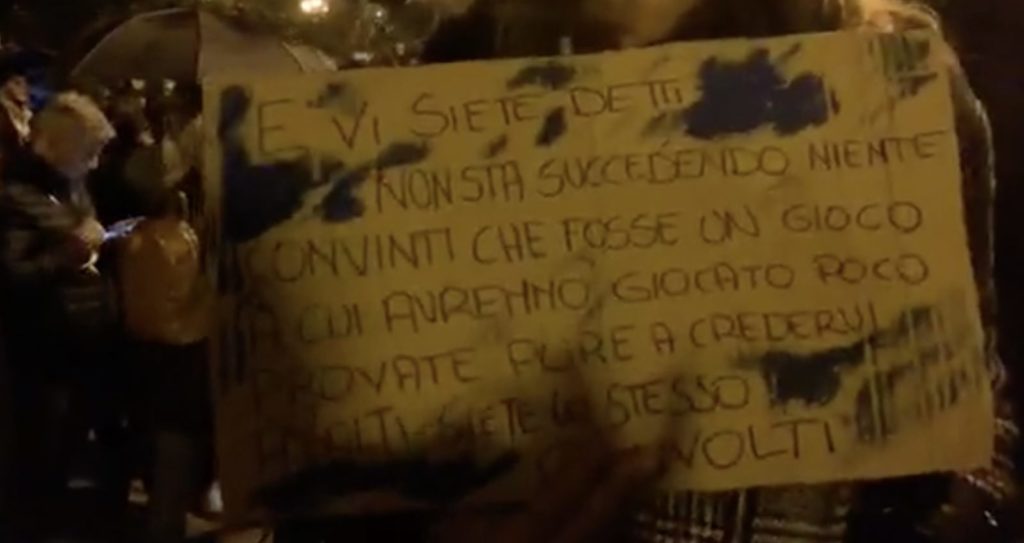 E VI SIETE DETTI
NON STA SUCCEDENDO NIENTE
CONVINTI CHE FOSSE UN GIOCO
A CUI AVREMMO GIOCATO POCO
PROVATE PURE A CREDERVI
ASSOLTI SIETE LO STESSO
VOLTI